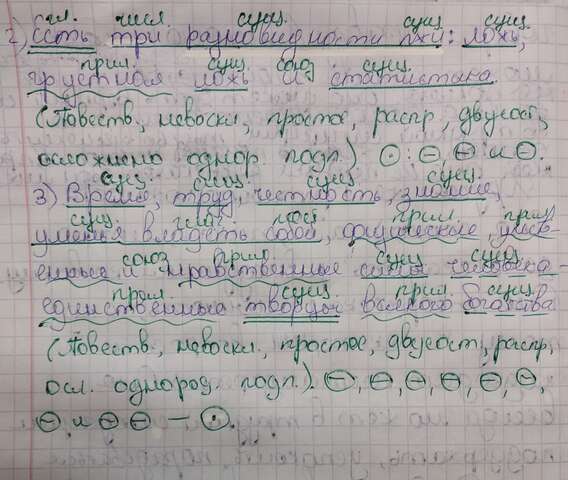 гл. числ. сущ. сущ. сущ.
2) Есть три разновидности лжи: ложь,
прил. сущ. союз сущ.
грустная ложь и статистика.
(Повеств., невоскл., простое, распр., двусост.,
осложнено однор. подл.) ⊙: ⊖, ⊖ и ⊖.
сущ. сущ. сущ. сущ.
3) Время, труд, честность, знание,
сущ. глаг. мест. прил. прил.
умения владеть собой, физические умств-
союз прил. сущ. сущ.
енные и нравственные силы человека -
прил. сущ. прил. сущ.
единственные творцы всякого богатства
(Повеств., невоскл., простое, двусост., распр.,
осл. однород. подл.). ⊖, ⊖, ⊖, ⊖, ⊖, ⊖,
⊖ и ⊖ ⊖ — ⊙.